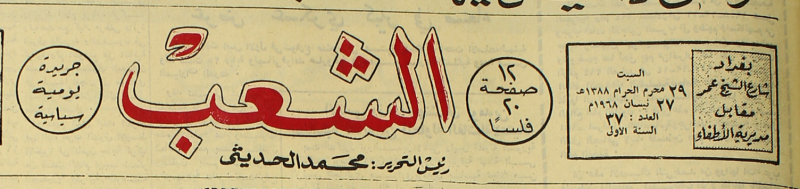 بغداد
شارع الشيخ عمر
مقابل
مديرية الأطفاء
السبت
٢٩ محرم الحرام ١٣٨٨هـ
٢٧ نيسان ١٩٦٨م
العدد : ٣٧
السنة الاولى
١٢
صفحة
٢٠
فلسًا
الشعب
رئيس التحرير: محمد الحديثي
جريدة
يومية
سياسية